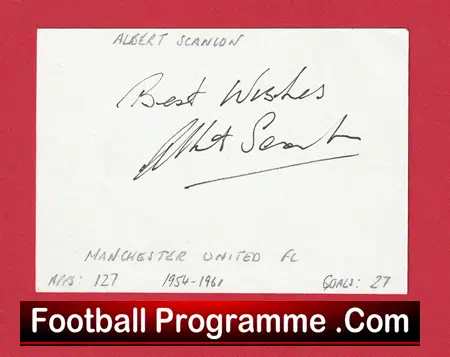 ALBERT SCANLON
Best Wishes
Albert Scanlon
MANCHESTER UNITED FC
APPS: 127 1954-1961 GOALS: 27
Football Programme .Com